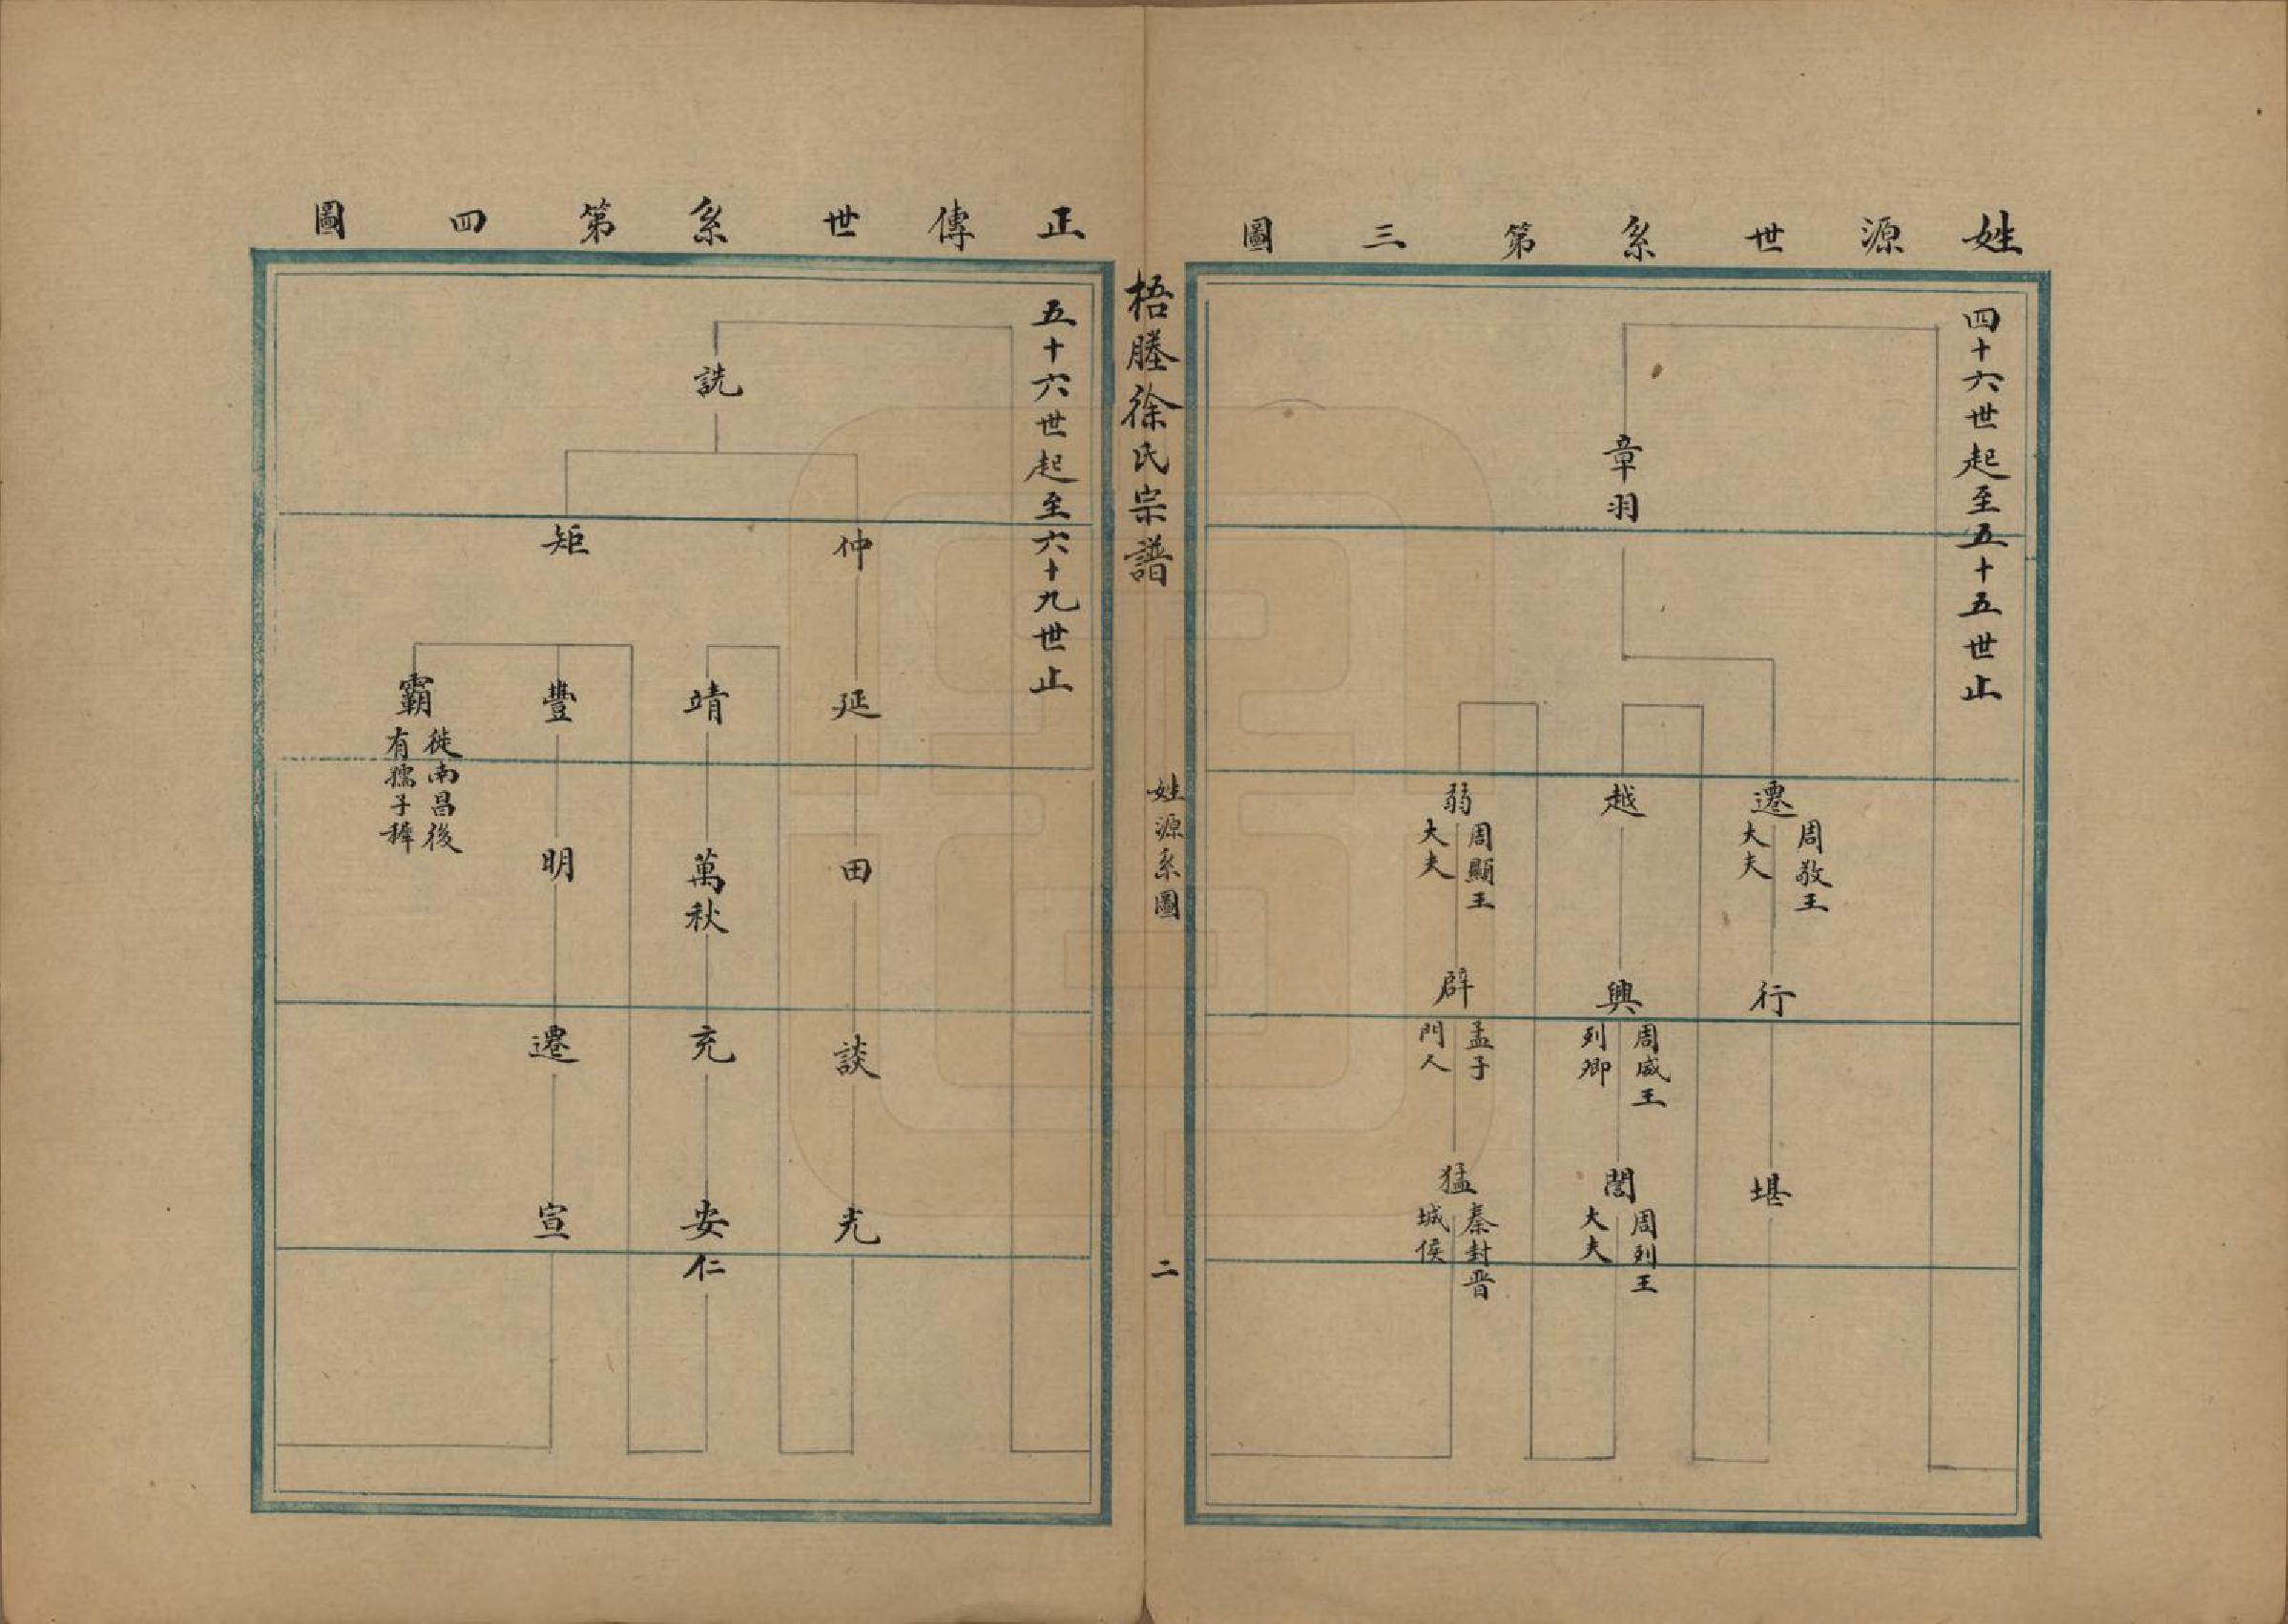 姓源世系第三圖
四十六世起至五十五世止
章羽
遷
周敬王
大夫
行
堪
越
興
周威王
列卿
誾
周列王
大夫
弱
周顯王
大夫
辟
孟子
門人
猛
秦封晋
城侯
梧塍徐氏宗譜
姓源系圖
二
正傳世系第四圖
五十六世起至六十九世止
詵
仲
延
田
談
光
矩
靖
萬秋
充
安仁
豐
明
遷
宣
霸
徙南昌後
有孺子穉